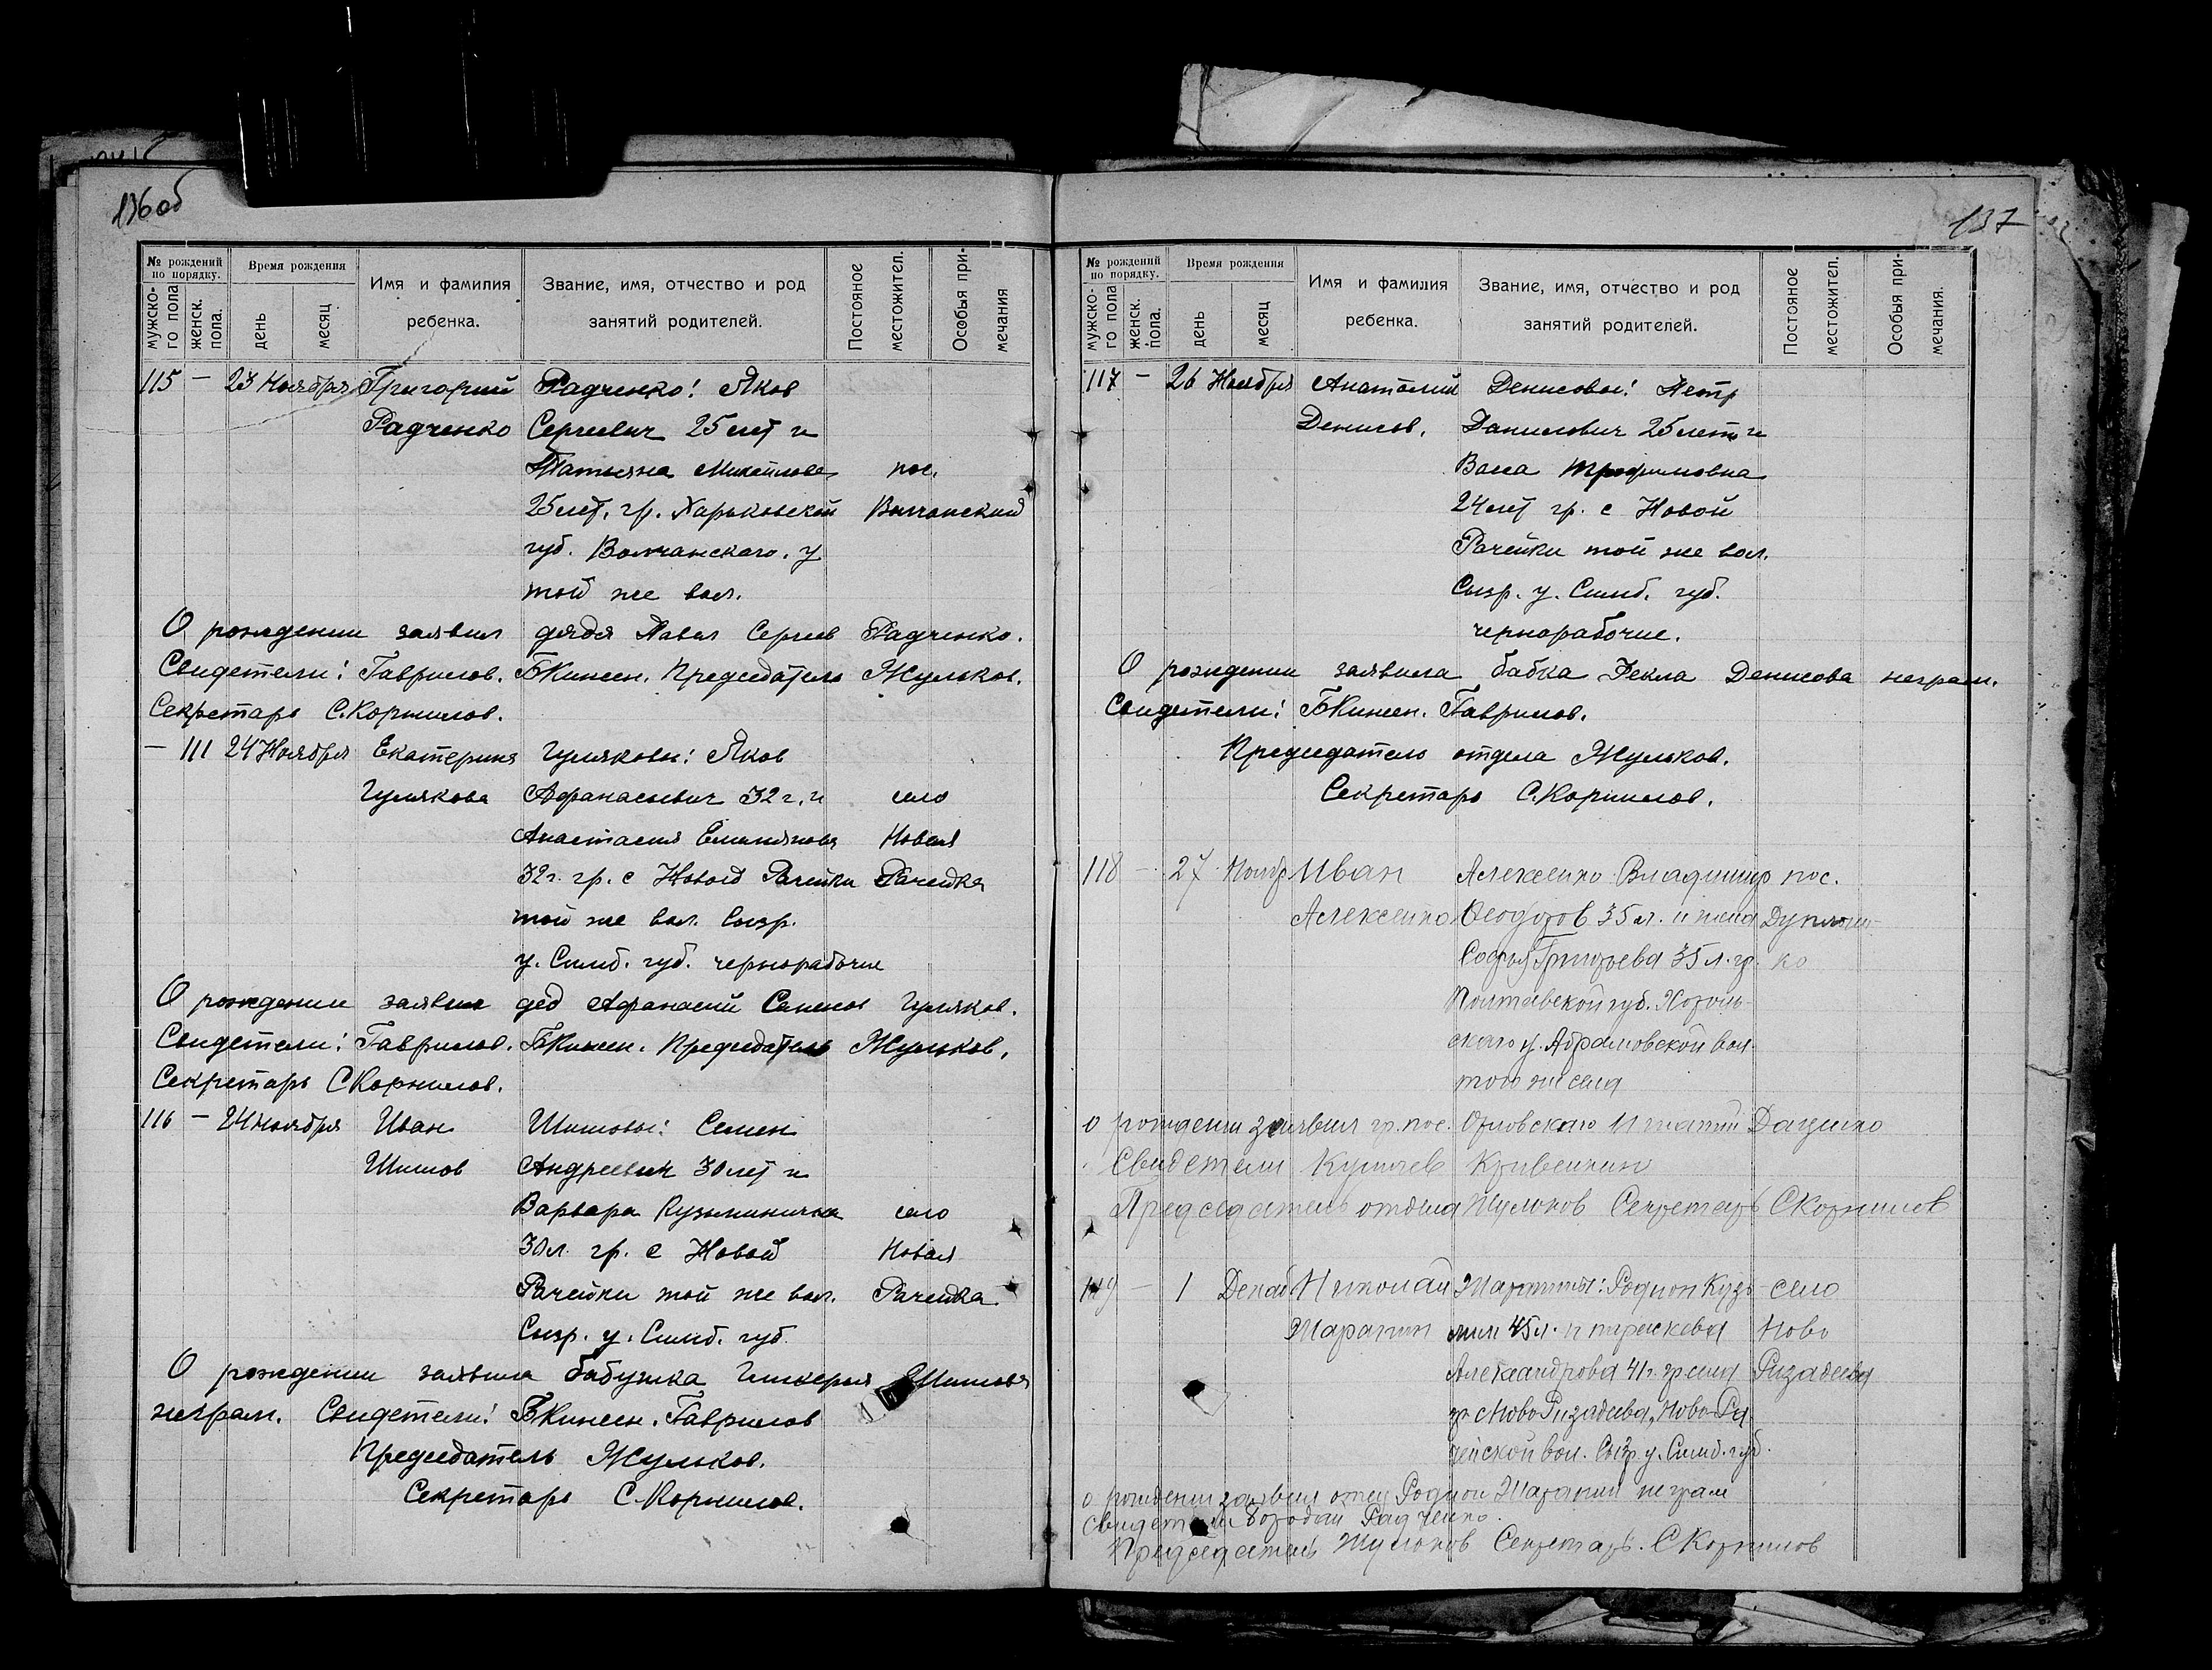 136 об
№ рождений по порядку. Время рождения Имя и фамилия ребенка. Звание, имя, отчество и род занятий родителей. Постояное местожител. Особыя примечания
мужского пола женск. пола. день месяц
115 — 23 Ноября Григорий Радченко! Яков
Радченко Сергеевич 25 лет и
Татьяна Михайлова пос.
25 лет, гр. Харьковской Волчанский
губ. Волчанского у
той же вол.
О рождении заявил дядя Павел Сергеев Радченко.
Свидетели: Гаврилов. Председатель Жульков.
Секретарь С.Корнилов.
— 111 24 Ноября Екатерина Гуляковы: Яков
Гулякова Афанасьевич 32 г. и село
Анастасия Емельянова Новая
32 г. гр. с Новой Рачейки Рачейка
той же вол. Сызр.
у. Симб. губ. чернорабочие
О рождении заявил дед Афанасий Семенов Гуляков.
Свидетели: Гаврилов. Председатель Жульков.
Секретарь С Корнилов.
116 — 24 ноября Иван Шишовы: Семен
Шишов Андреевич 30 лет и
Варвара Кузьминична село
30 л. гр. с Новой Новая
Рачейки той же вол. Рачейка
Сызр. у. Симб. губ.
О рождении заявила бабушка Шишова
неграм. Свидетели: Гаврилов
Председатель Жульков.
Секретарь С.Корнилов.
137
№ рождений по порядку. Время рождения Имя и фамилия ребенка. Звание, имя, отчество и род занятий родителей. Постояное местожител. Особыя примечания.
мужского пола женск. пола. день месяц
117 — 26 Ноября Анатолий Денисовы: Петр
Денисов. Данилович 25 лет и
Васса Трофимовна
24 лет гр. с Новой
Рачейки той же вол.
Сызр. у. Симб. губ.
чернорабочие.
О рождении заявила бабка Фекла Денисова неграм.
Свидетели: Гаврилов.
Председатель отдела Жульков.
Секретарь С.Корнилов.
118 — 27 Ноябр Иван Алексенко Владимир пос.
Алексенко Феодоров 35 л. и жена
Софья Григорьева 35 л. гр. ко
Полтавской губ. Хороль-
ского у. Абрамовской вол.
того же села
о рождении заявил гр. пос. Орловского Игнатий Даценко
Свидетели Кривенкин
Председатель отдела Жульков Секретарь С Корнилов
119 — 1 Декаб Николай Шаранины: Родион Кузь- село
Шаранин мич 45 л. и праскева Ново
Александрова 41 г. гр села Ризадеева
гр с Ново Ризадеева, Ново-Ра
чейской вол. Сызр. у. Симб. губ.
о рождении заявил отец Родион Шаранин неграм
Свидетели Бородин Радченко.
Председатель Жульков Секретарь. С Корнилов